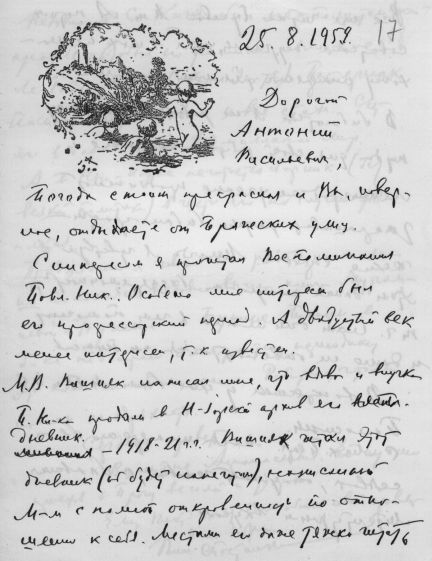 25.8.1958 17
Дорогой
Антоний
Васильевич,
Погода стоит прекрасная и Вы, навер-
ное, отдыхаете от
С интересом я прочитал воспоминания
Павл. Ник.. Особено мне интересен был
его профессорский период. А двадцатый век
менее интересен, т.к. известен.
М.В. Вишняк написал мне, что вдова и внучка
П. Ник-ча продали в Н-Йоркский архив его
дневник – 1918-21 г.г. Вишняк читал этот
дневник (он будет напечатан), написанный
М-м с полной откровенностью по отно-
шению к себе. Местами его даже тяжко читать